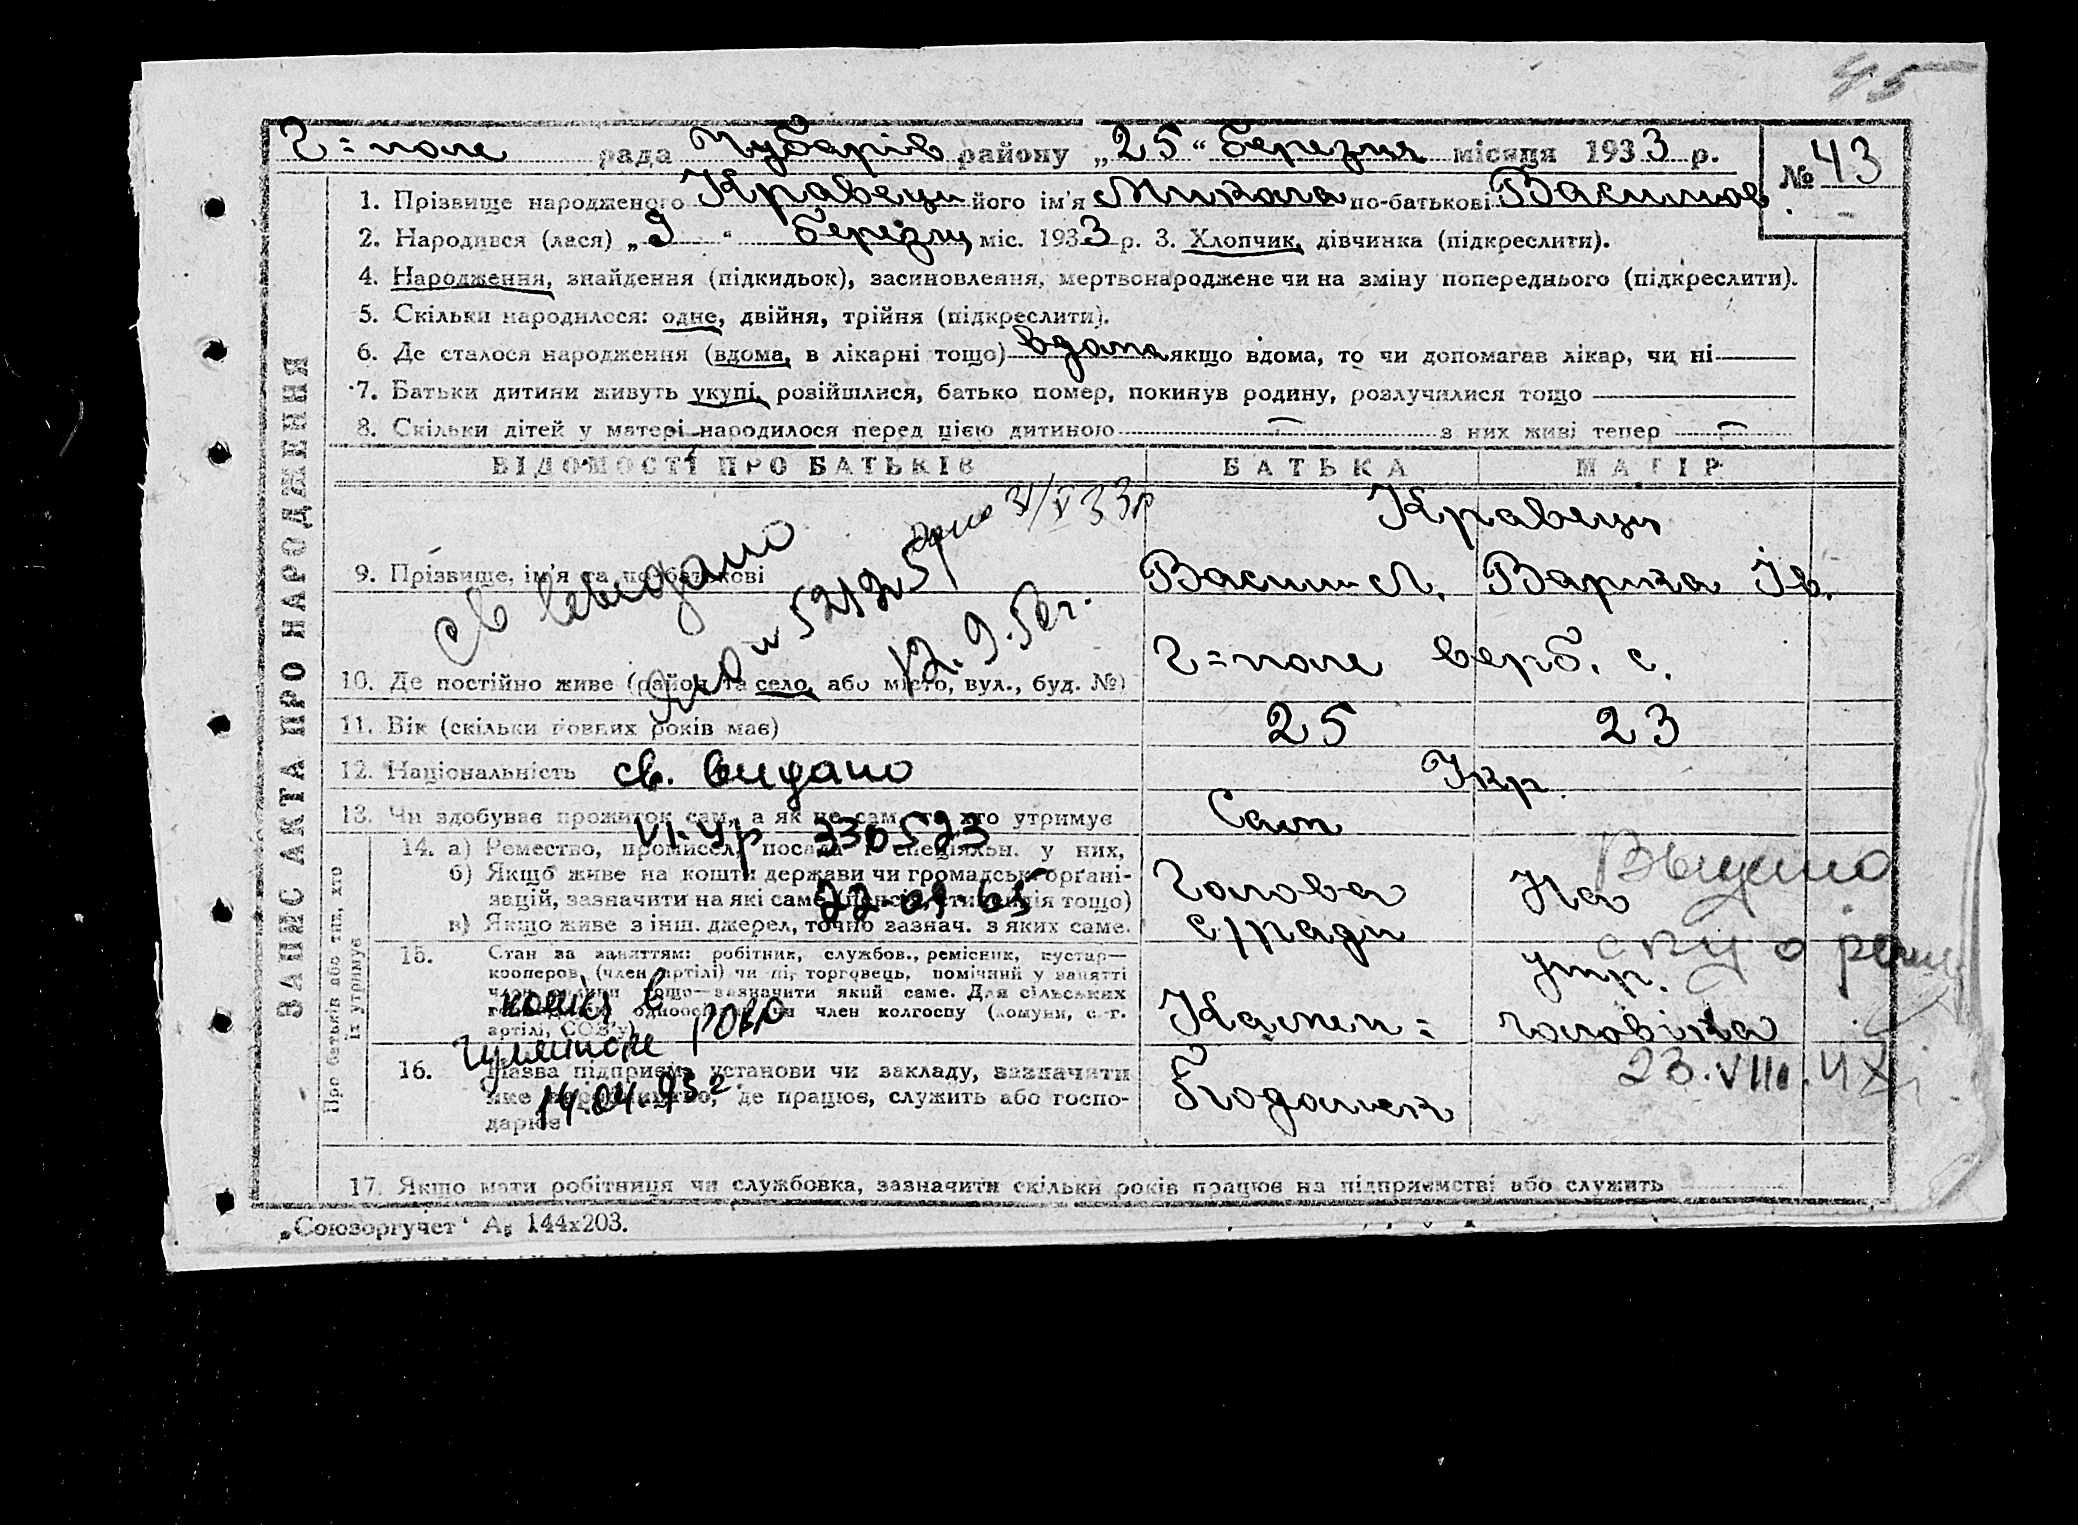 45
Г=поле рада Чубарів району „25“ березня місяця 1933 р. № 43
1. Прізвище народженого Кравець його ім'я Микола по-батькові Васильов
2. Народився (лася) „9“ березня міс. 1933 р. 3. Хлопчик, дівчинка (підкреслити).
4. Народження, знайдення (підкидьок), засиновлення, мертвонароджене чи на зміну попереднього (підкреслити).
5. Скільки народилося: одне, двійня, трійня (підкреслити).
6. Де сталося народження (вдома, в лікарні тощо) вдома якщо вдома, то чи допомагав лікар, чи ні
7. Батьки дитини живуть укупі, розвійшлися, батько помер, покинув родину, розлучилися тощо
8. Скільки дітей у матері народилося перед цією дитиною — з них живі тепер —
ЗАПИС АКТА ПРО НАРОДЖЕННЯ
ВІДОМОСТІ ПРО БАТЬКІВ БАТЬКА МАТІР
Кравець
9. Прізвище, ім'я та по-батькові Василь Л. Варка Ів.
св видано
12.9.50г.
10. Де постійно живе (район та село, або місто, вул., буд. №) Г=поле верб. с.
11. Вік (скільки повних років має) 25 23
12. Національність Укр.
св. видано
13. Чи здобуває прожиток сам, а як не сам, то хто утримує Сам
VI-УР 330523
22-09-65
14. а) Ремество, промисел, посада і спеціяльн. у них,
б) Якщо живе на кошти держави чи громадськ. організацій, зазначити на які саме (пенсія, стипендія тощо)
в) Якщо живе з інш. джерел, точно зазнач. з яких саме.
Голова с/ради
На утр. чоловіка
Выдано
23.VIII.4
Про батьків або тих, хто їх утримує
15. Стан за заняттям: робітник, службов., ремісник, кустар—
кооперов. (член артілі) чи ні, торговець, помічний у занятті
член родини тощо—зазначити який саме. Для сільських
господарів: одноосібник чи член колгоспу (комуни, с.-г.
артілі, СОЗ'у)
копия в
РОВД
14.04.93г.
16. Назва підприємс. установи чи закладу, зазначити
яке виробництво, де працює, служить або госпо-
дарює
17. Якщо мати робітниця чи службовка, зазначити скільки років працює на підприємстві або служить
„Союзоргучет“ А5 144х203.